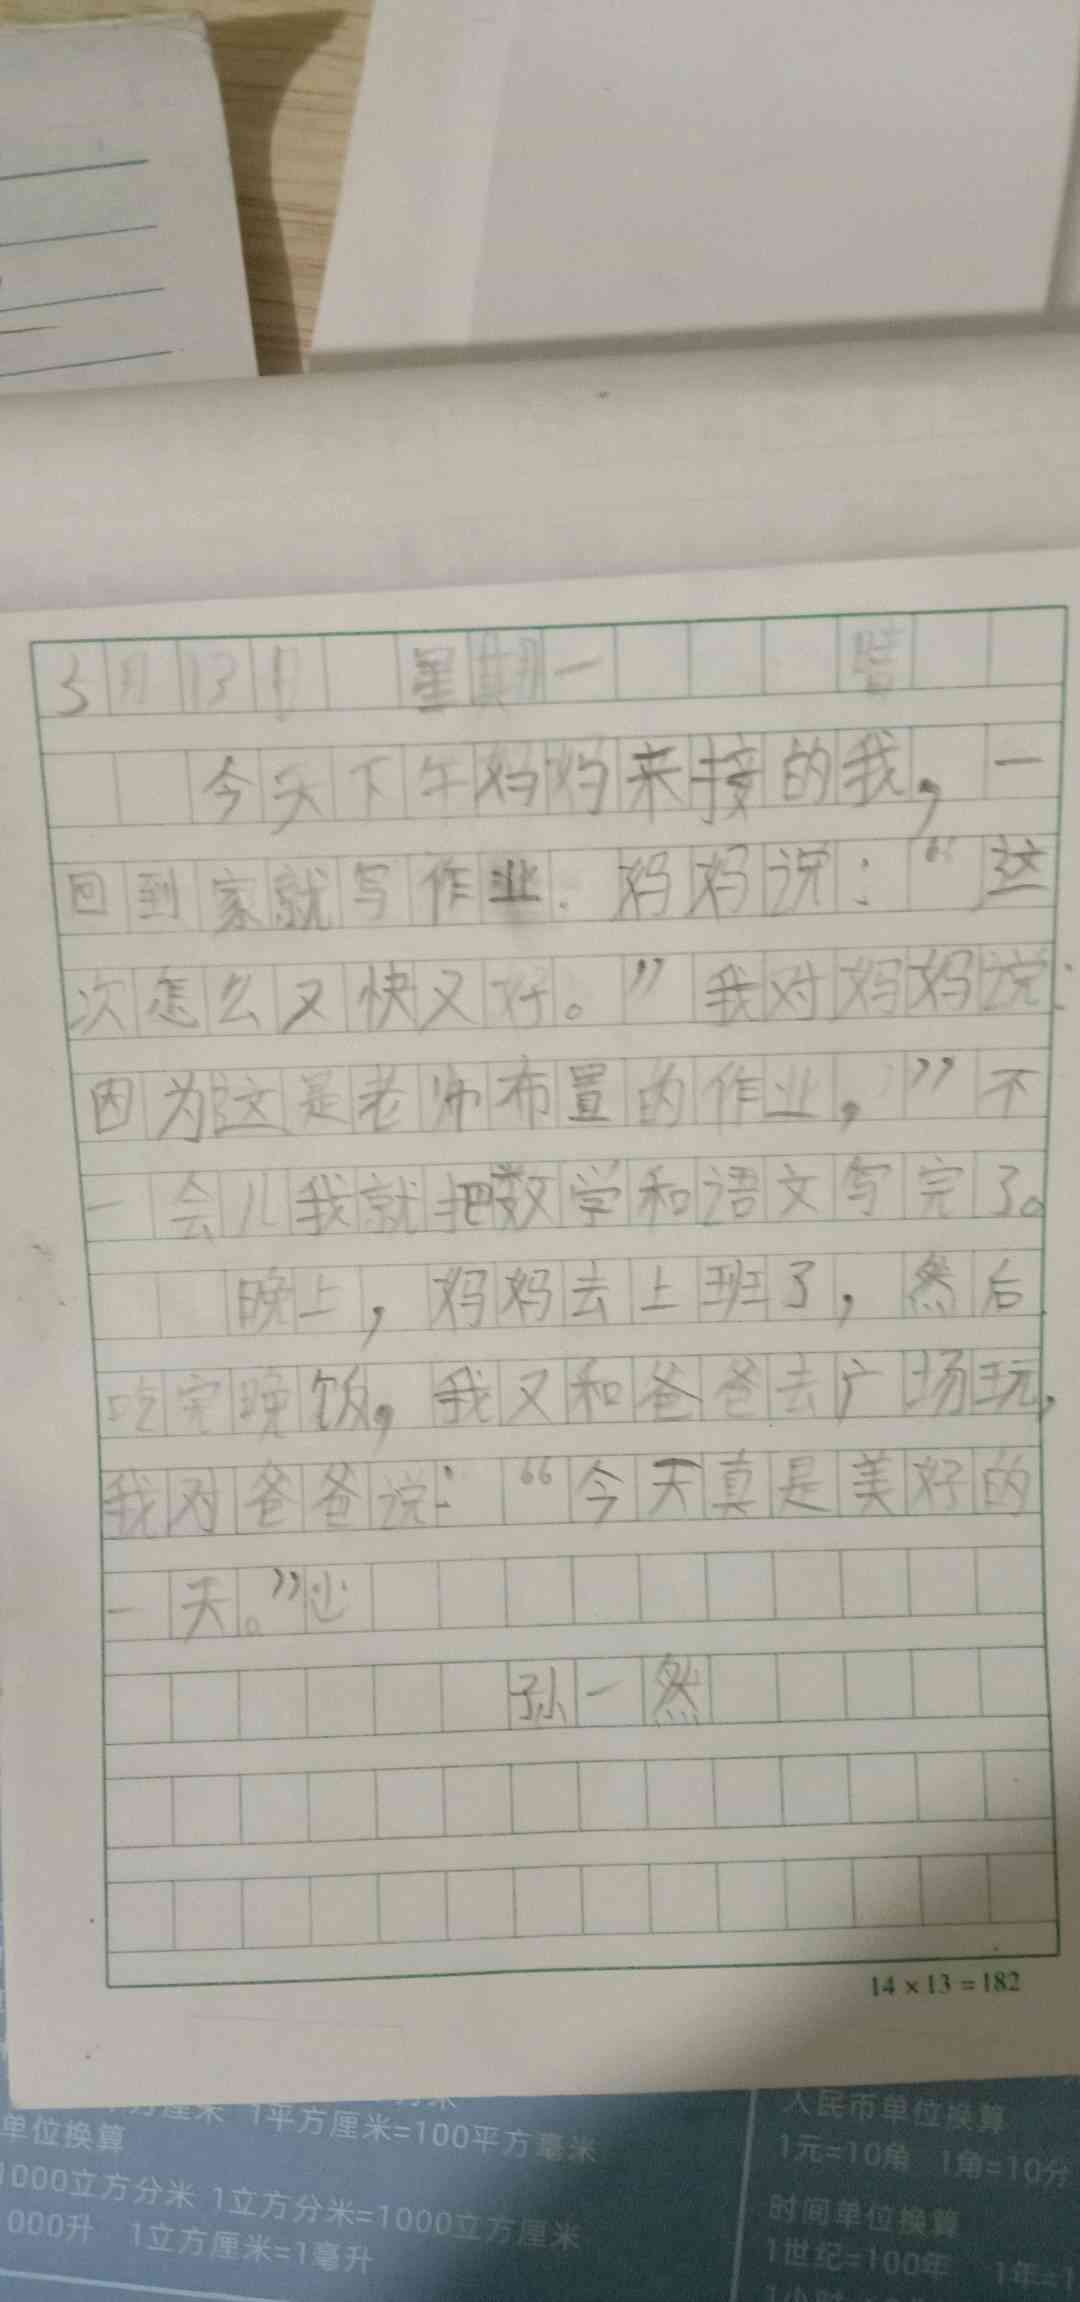 5月13日 星期一 晴
今天下午妈妈来接的我，一
回到家就写作业．妈妈说：“这
次怎么又快又好。”我对妈妈说：
因为这是老师布置的作业，”不
一会儿我就把数学和语文写完了。
晚上，妈妈去上班了，然后
吃完晚饭，我又和爸爸去广场玩，
我对爸爸说：“今天真是美好的
一天。”
孙一然
14×13=182
1平方厘米=100平方毫米
单位换算
1000立方分米 1立方分米=1000立方厘米
000升 1立方厘米=1毫升
人民币单位换算
1元=10角 1角=10分
时间单位换算
1世纪=100年 1年=1